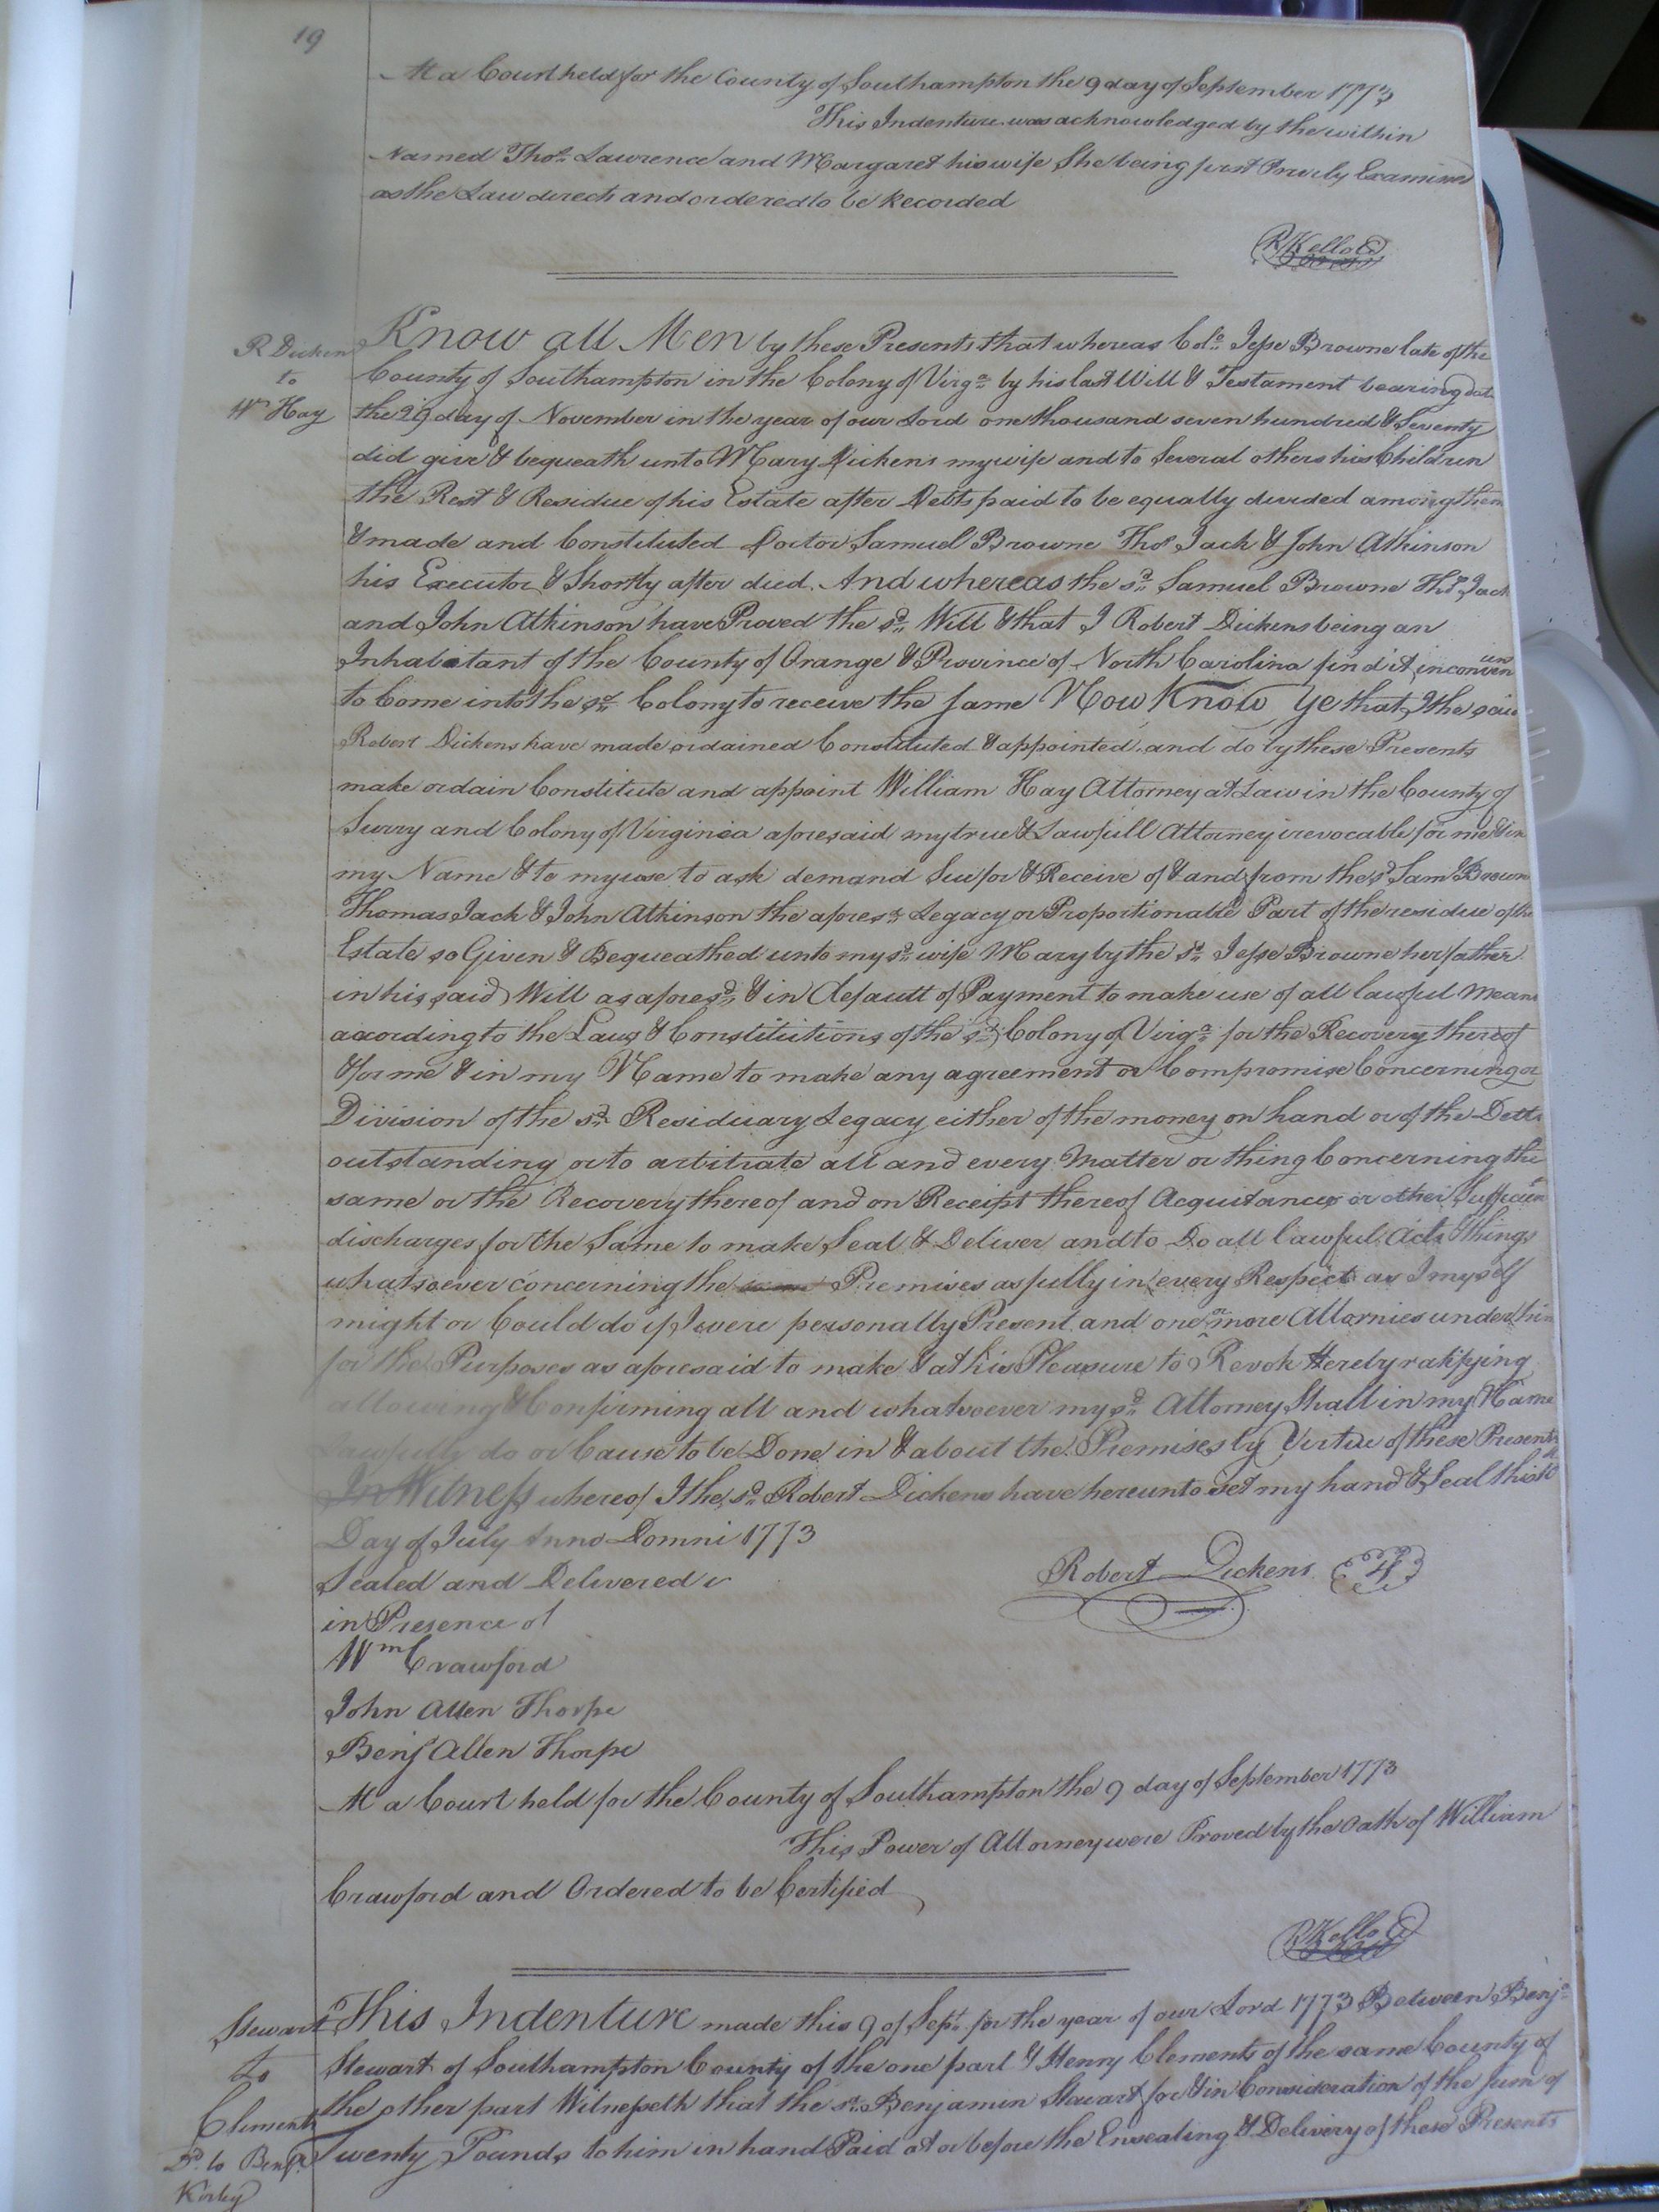 19
At a Court held for the County of Southampton the 9 day of September 1773
This Indenture was acknowledged by the within
Named Thos. Lawrence and Margaret his wife She being first Privily Examined
as the Law directs and ordered to be Recorded
R Kello C
R Dicken
to
Wm Hay
Know all Men by these Presents that whereas Colo. Jesse Browne late of the
County of Southampton in the Colony of Virga. by his last Will & Testament bearing dat
the 29 day of November in the year of our Lord one thousand seven hundred & Seventy
did give & bequeath unto Mary Dickens my wife and to Several others his Children
the Rest & Residue of his Estate after Debts paid to be equally divided among them
& made and Constituted Doctor Samuel Browne Thos Jack & John Atkinson
his Executor & Shortly after died. And whereas the sd. Samuel Browne Thos. Jack
and John Atkinson have Proved the sd. Will & that I Robert Dickens being an
Inhabitant of the County of Orange & Province of North Carolina find it inconven
to Come into the sd. Colony to receive the same Now Know ye that I the said
Robert Dickens have made ordained Constituted & appointed and do by these Presents
make ordain Constitute and appoint William Hay Attorney at Law in the County of
Surry and Colony of Virginia aforesaid my true & Lawfull Attorney irevocable for me & in
my Name & to my use to ask demand Sue for & Receive of & and from the sd Saml Brown
Thomas Jack & John Atkinson the aforesd. Legacy or Proportionable Part of the residue of the
Estate so Given & Bequeathed unto my sd. wife Mary by the sd. Jesse Browne her father
in his said Will as aforesd. & in default of Payment to make use of all lawful Means
according to the Laws & Constitutions of the sd. Colony of Virga. for the Recovery thereof
& for me & in my Name to make any agreement or Compromise Concerning or
Division of the sd. Residuary Legacy either of the money on hand or of the Detts
outstanding or to arbitrate all and every Matter or thing Concerning the
same or the Recovery thereof and on Receipt thereof Acquitances or other Sufficien
discharges for the Same to make Seal & Deliver and to Do all lawful Acts & things
whatsoever concerning the Premises as fully in every Respect as I myself
might or Could do if I were personally Present and one or more Attornies under him
for the Purposes as aforesaid to make & at his Pleasure to Revok Hereby ratifying
allowing & Confirming all and whatsoever my sd. Attorney Shall in my Name
Lawfully do or Cause to be Done in & about the Premises by Virtue of these Presents
In Witness whereof I the sd. Robert Dickens have hereunto set my hand & Seal this 10
Day of July Anno Domni 1773
Sealed and Delivered
in Presence of
Robert Dickens
Wm Crawford
John Allen Thorpe
Benj Allen Thorpe
At a Court held for the County of Southampton the 9 day of September 1773
This Power of Attorney were Proved by the Oath of William
Crawford and Ordered to be Certified
R Kello C
Stewart
to
Clements
This Indenture made this 9 of Sept. for the year of our Lord 1773 Between Benja.
Stewart of Southampton County of the one part & Henry Clements of the same County of
the other part Witnesseth that the sd. Benjamin Stewart for & in Consideration of the sum of
Twenty Pounds to him in hand Paid at or before the Ensealing & Delivery of these Presents
Dd. to Benja.
Kirby